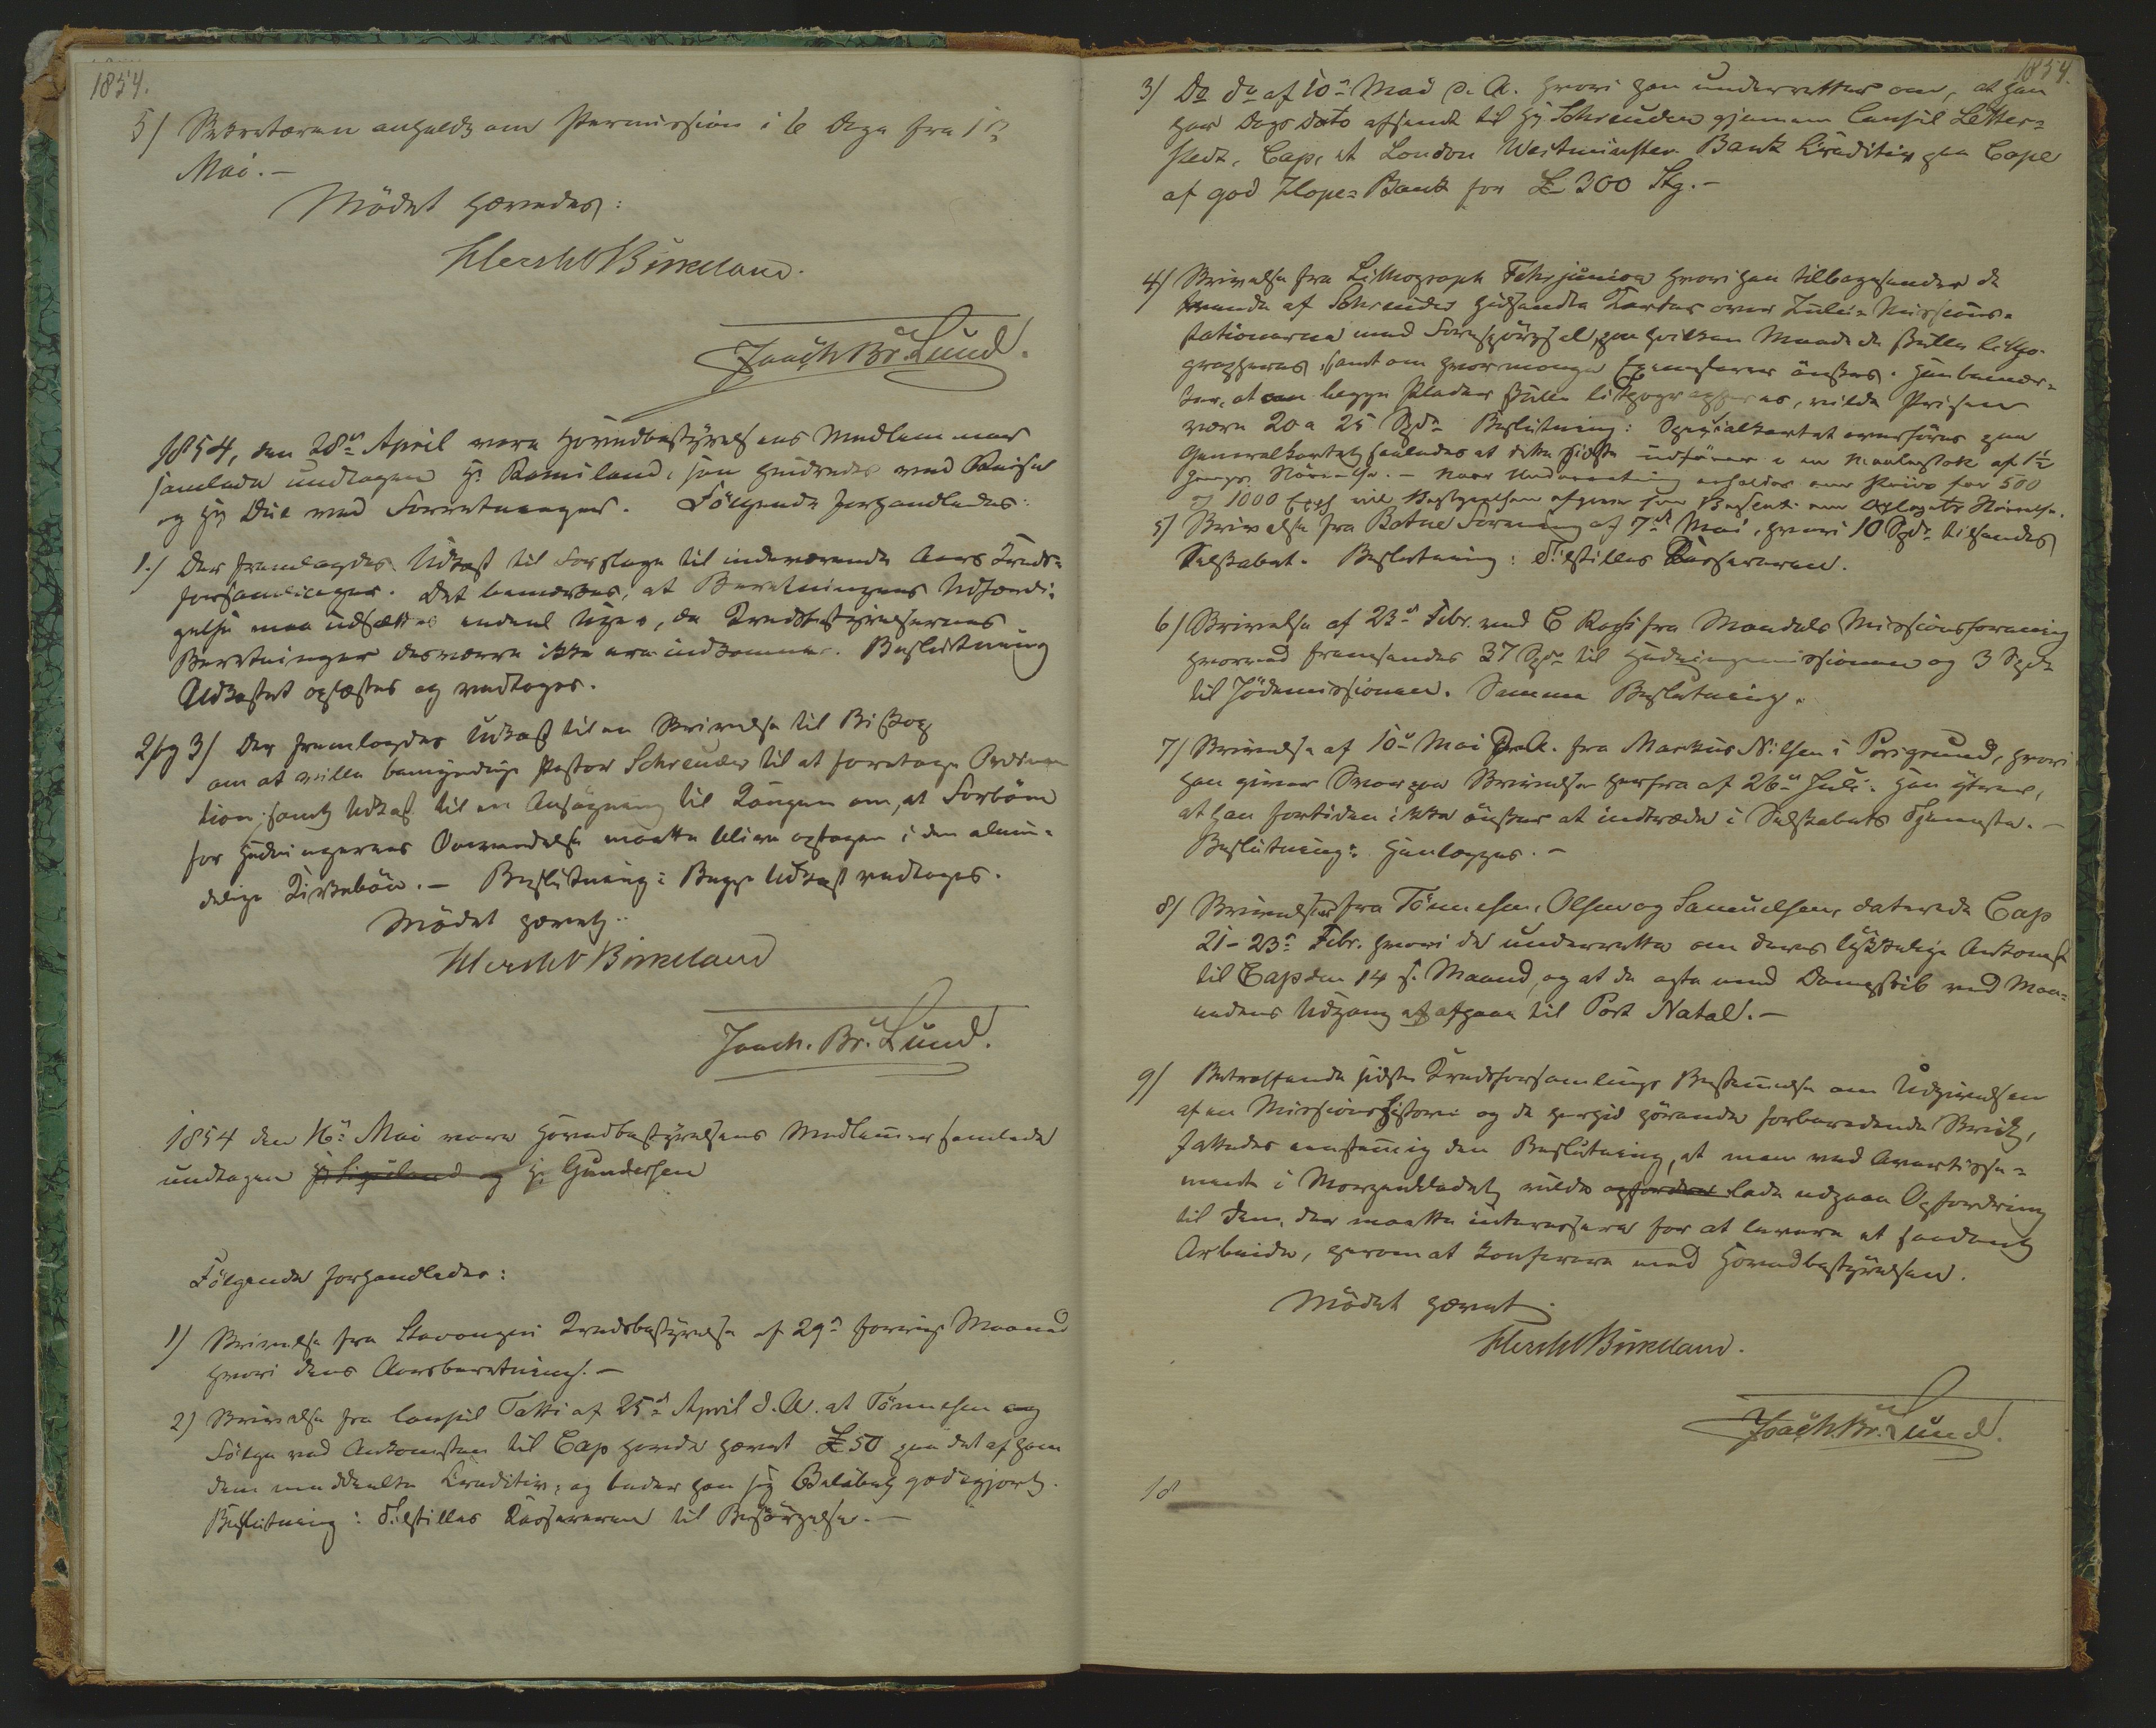 1854.
5/ Sekretæren anholdt om Permission i 6 Dage fra 1ste
Mai. –
Mödet hævedes:
Mersht Birkeland.
Joach Br. Lund.
1854, den 28de April vare Hovedbestyrelsens Medlemmer
samlede undtagen Hr. som hindredes ved Reise
og Hr Due ved Forretninger. Fölgende forhandledes:
1./ Der fremlagdes Udkast til Forslage til indeværende Aars Kreds-
forsamlinger. Det bemærkes, at Beretningens Udfærdi-
gelse maa udsættes endeel Uger, da Kredsbestyrelsernes
Beretninger desværre ikke ere indkomne. Beslutning
Udkastet oplæstes og vedtoges.
2/ og 3/ Der fremlagdes Udkast til en Skrivelse til Biskop
om at ville bemyndige Pastor Schreuder til at foretage Ordina-
tion, samt Udkast til en Ansögning til Kongen om, at Forbön
for Hedningernes Omvendelse maatte blive optagen i den almin-
delige Kirkebön. – Beslutning: Begge Udkast vedtoges.
Mödet hævet.
Mersht Birkeland
Joach. Br. Lund.
1854 den 16de Mai vare Hovedbestyrelsens Medlemmer samlede
undtagen og Hr. Gundersen
Fölgende forhandledes:
1) Skrivelse fra Stavanger Kredsbestyrelse af 29de forrige Maaned
hvori dens Aarsberetning. –
2) Skrivelse fra Consul Tatti af 25de April d. A. at Tönnesen og
Fölge ved Ankomsten til Cap havde hævet £ 50 paa det af ham
dem meddeelte Creditiv, og beder han sig Belöbet godtgjort.
Beslutning: Tilstilles Kassereren til Besörgelse. –
1854.
3/ Do do af 10de Mai d. A. hvori han underretter om, at han
har Dags Dato afsendt til Hr Schreuder gjennem Consul Letter-
stedt, Cap, et London Westminster Bank Creditiv paa Cape
af god Hope-Bank for £ 300 Stg. –
4/ Skrivelse fra Lithograph Fehr junior hvori han tilbagesender de
tvende af Schreuder hidsendte Karter over Zulu-Missions-
stationerne med Forespörgsel, paa hvilken Maade de skulle litho-
grapheres, samt om hvormange Exemplarer önskes. Han bemær-
ker, at om begge Plader skulle lithographeres, vilde Prisen
være 20 a 25 Spd. Beslutning: Specialkartet overföres paa
Generalkartet saaledes at dette sidste udföres i en Maalestok af 1½
Gangs Störrelse. – Naar Underretning erholdes om Priis for 500
og 1000 Expl vil Bestyrelsen afgive sin Besked om Oplagets Störrelse.
5/ Skrivelse fra Botne Forening af 7de Mai, hvori 10 Spd. tilsendes
Selskabet. Beslutning: Tilstilles Kassereren.
6/ Skrivelse af 23de Febr. ved C fra Mandals Missionsforening
hvorved fremsendes 37 Spd. til Hedningemissionen og 3 Spd
til Jödemissionen. Samme Beslutning.
7/ Skrivelse af 10de Mai d. A. fra Markus Nilsen i Porsgrund, hvori
han giver Svar paa Skrivelse herfra af 26de Juli. Han ytrer,
at han fortiden ikke önsker at indtræde i Selskabets Tjeneste. –
Beslutning: Henlægges. –
8/ Skrivelser fra Tönnesen, Olsen og Samuelsen, daterede Cap
21–23de Febr. hvori de underrette om deres lykkelige Ankomst
til Cap den 14 s. Maaned, og at de agte med Dampskib ved Maa-
nedens Udgang at afgaa til Port Natal. –
9/ Betræffende sidste Kredsforsamlings Bestemmelse om Udgivelsen
af en Missionshistorie og de herhid hörende forberedende Skridt,
fattedes eenstemmig den Beslutning, at man ved Avertisse-
ment i Morgenbladet vilde opfordre lade udgaae Opfordring
til Dem, der maatte interessere for at levere et saadant
Arbeide, herom at konferere med Hovedbestyrelsen.
Mödet hævet.
Mersht Birkeland.
Joach. Br. Lund.
18